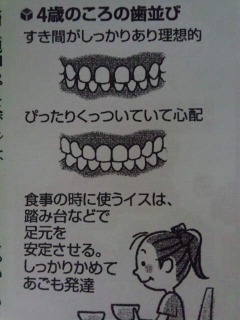 4歳のころの歯並び
すき間がしっかりあり理想的
ぴったりくっついていて心配
食事の時に使うイスは、
踏み台などで
足元を
安定させる。
しっかりかめて
あごも発達